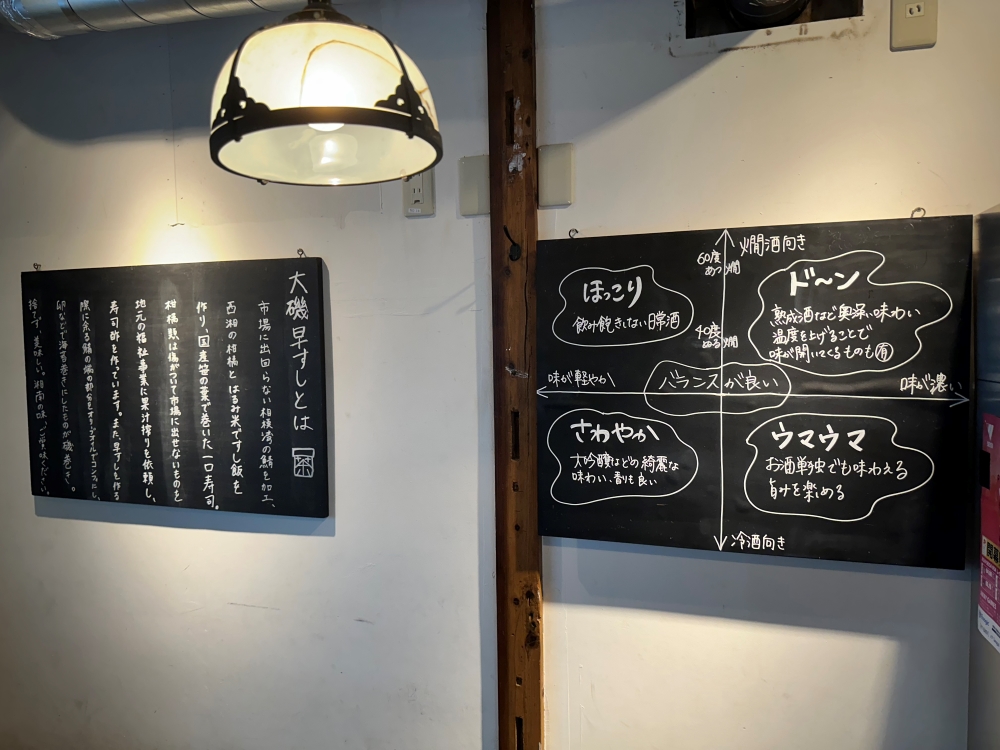 大磯早すしとは
市場に出回らない相模湾の鯖を加工、
西湘の柑橘とはるみ米ですし飯を
作り、国産笹の葉で巻いた一口寿司。
柑橘類は傷がついて市場に出せないものを
地元の福祉事業に果汁搾りを依頼し、
寿司酢を作っています。また、早すしを作る
際に余る鯖の端の部分をオリジナルでコンフィにし、
卵などと海苔巻きにしたものが磯巻き。
捨てず、美味しい。湘南の味、ご賞味ください。
燗酒向き
60度
あつ燗
40度
ぬる燗
ほっこり
飲み飽きしない日常酒
ド〜ン
熟成酒など奥深い味わい
温度を上げることで
味が開いてくるものも有
味が軽やか
バランスが良い
味が濃い
さわやか
大吟醸などの綺麗な
味わい、香りも良い
ウマウマ
お酒単独でも味わえる
旨みを楽める
冷酒向き